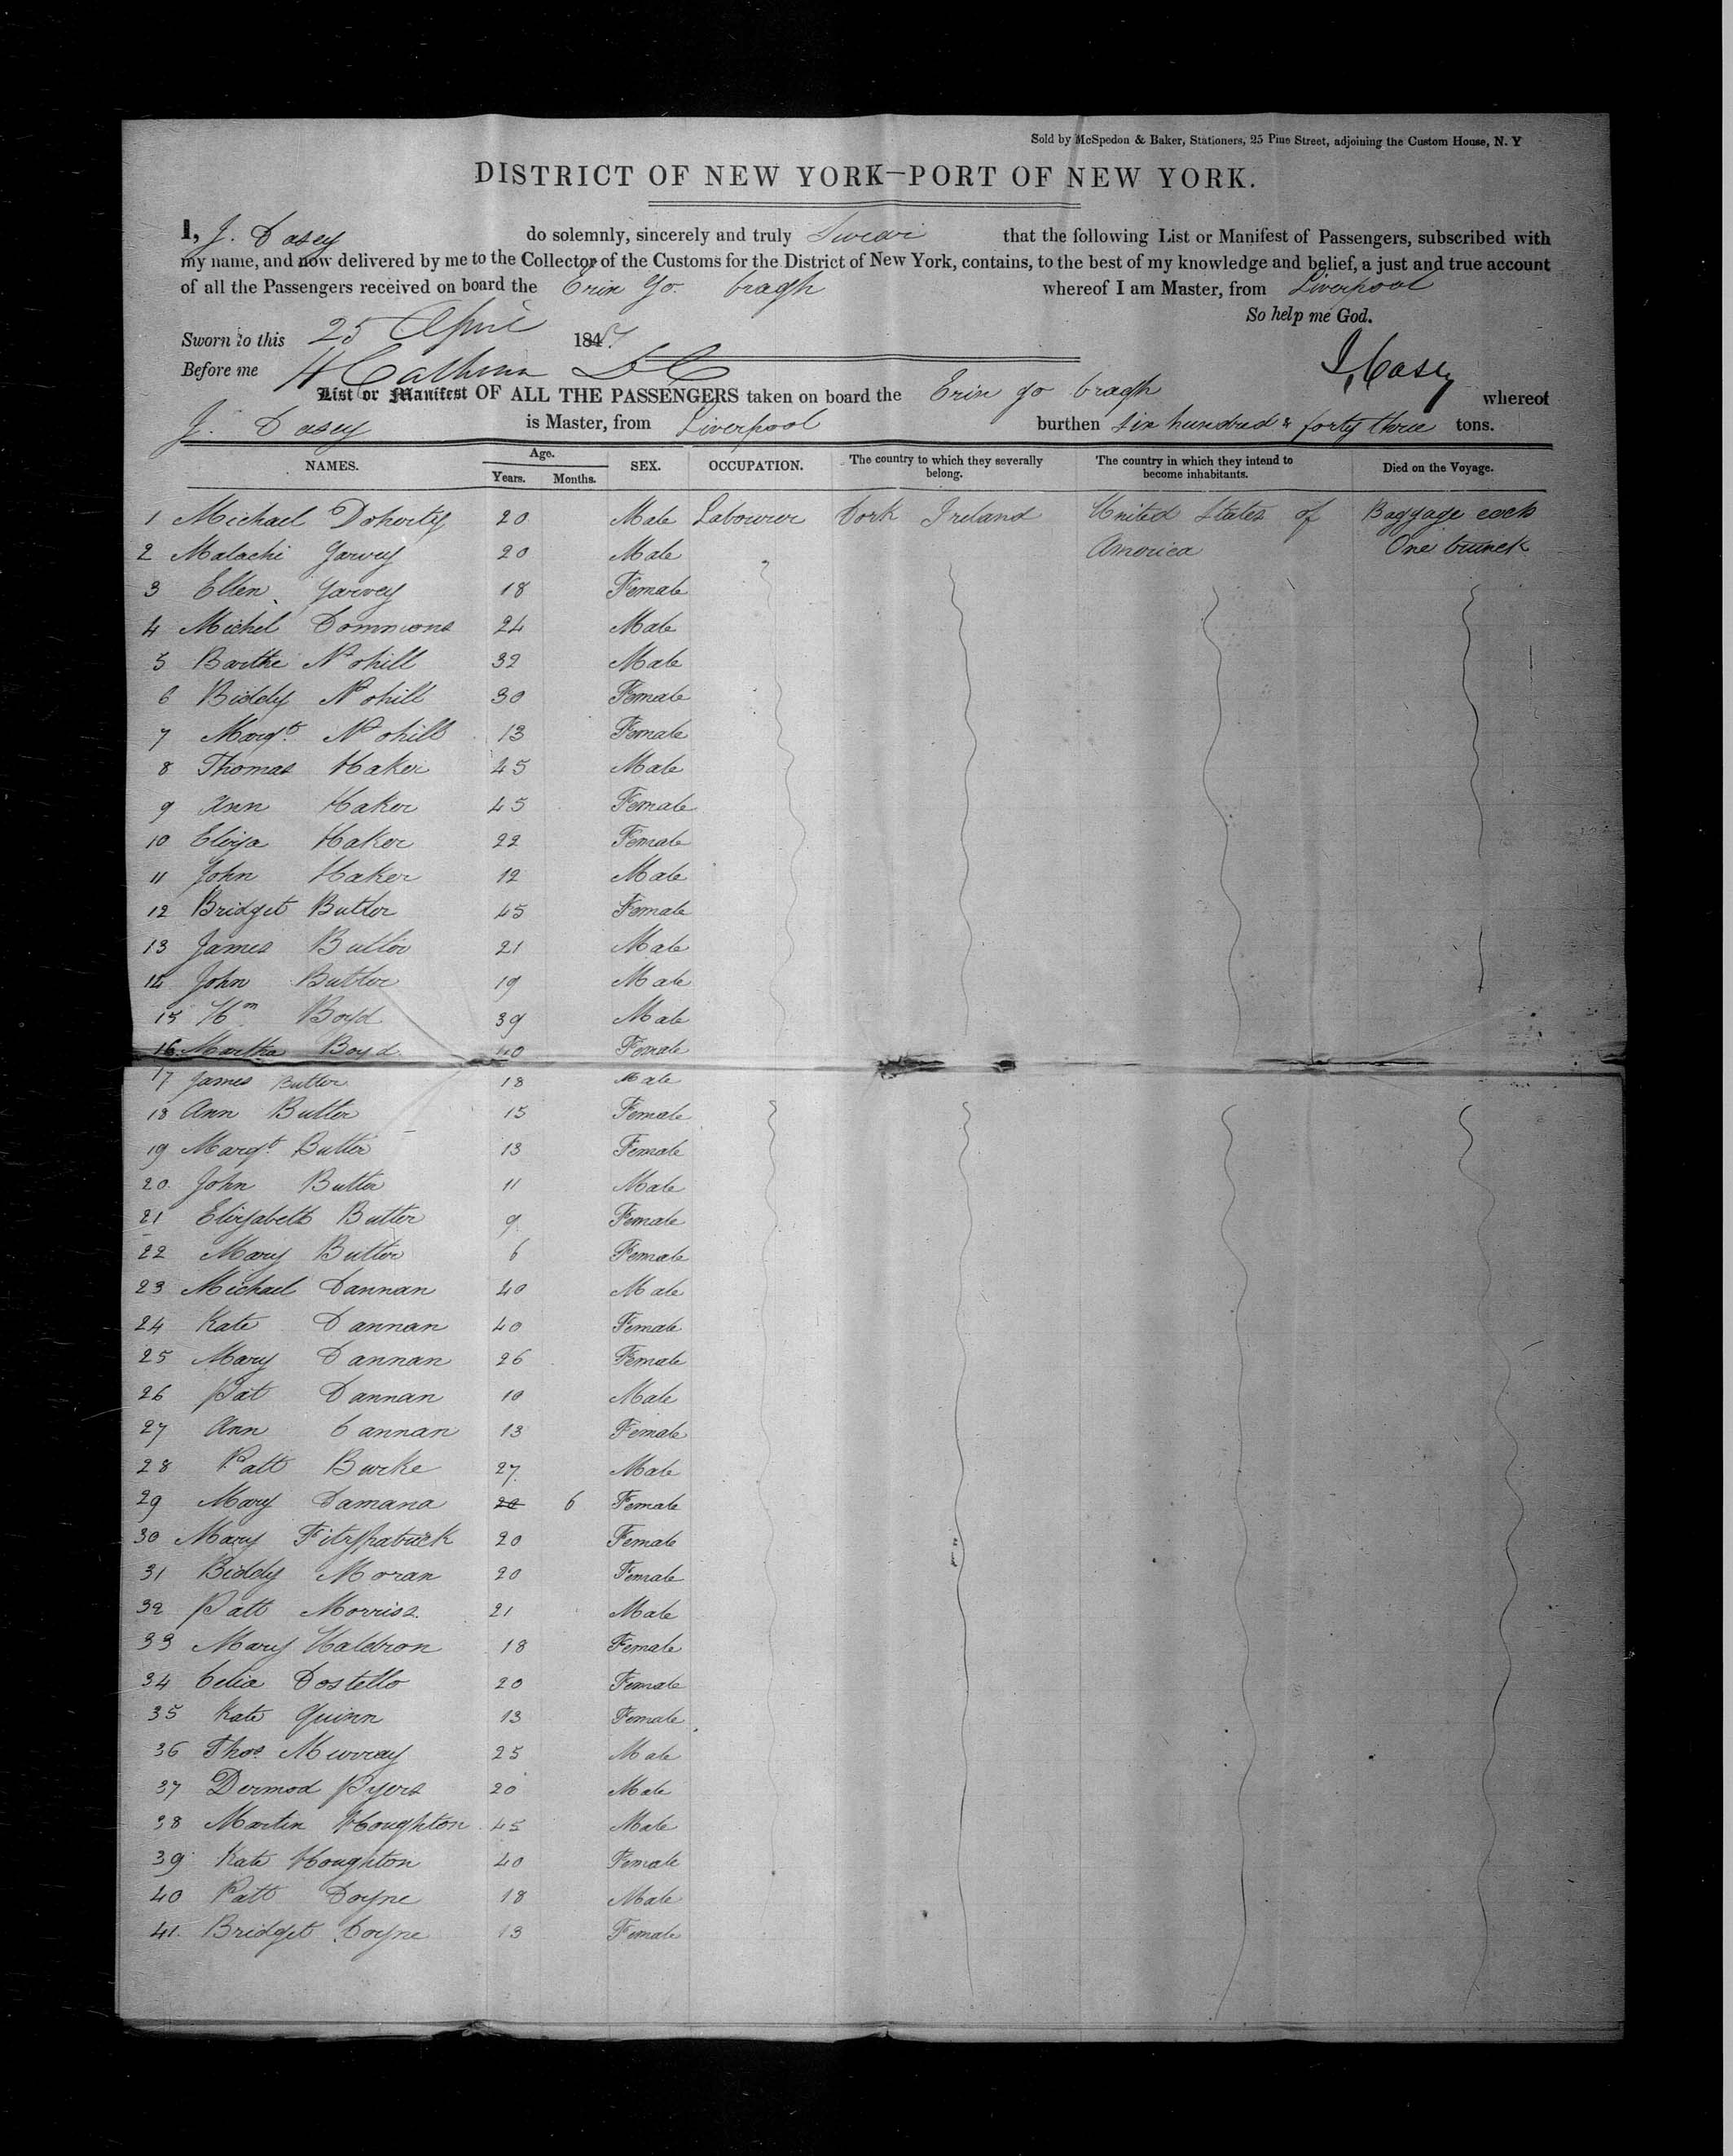 Sold by McSpedon & Baker, Stationers, 25 Pine Street, adjoining the Custom House, N. Y
DISTRICT OF NEW YORK—PORT OF NEW YORK.
I, J. Casey do solemnly, sincerely and truly Swear that the following List or Manifest of Passengers, subscribed with
my name, and now delivered by me to the Collector of the Customs for the District of New York, contains, to the best of my knowledge and belief, a just and true account
of all the Passengers received on board the Erin Go bragh whereof I am Master, from Liverpool
So help me God.
Sworn to this 25 April 184
Before me H Calhoun DC J Casey
List or Manifest OF ALL THE PASSENGERS taken on board the Erin go bragh whereof
J. Casey is Master, from Liverpool burthen six hundred & forty three tons.
NAMES. Age. Years. Months. SEX. OCCUPATION. The country to which they severally belong. The country in which they intend to become inhabitants. Died on the Voyage.
1 Michael Doherty 20 Male Labourer Cork Ireland United States of Baggage each
2 Malachi Garvey 20 Male America One trunck
3 Ellen Garvey 18 Female
4 Michel Commons 24 Male
5 Barthe Nohill 32 Male
6 Biddy Nohill 30 Female
7 Margt. Nohill 13 Female
8 Thomas Haker 45 Male
9 Ann Haker 45 Female
10 Eliza Haker 22 Female
11 John Haker 12 Male
12 Bridget Butler 45 Female
13 James Butler 21 Male
14 John Butler 19 Male
15 Wm Boyd 39 Male
16 Martha Boyd 40 Female
17 James Butler 18 Male
18 Ann Butler 15 Female
19 Margt. Butler 13 Female
20 John Butler 11 Male
21 Elizabeth Butler 9 Female
22 Mary Butler 6 Female
23 Michael Cannan 40 Male
24 Kate Cannan 40 Female
25 Mary Cannan 26 Female
26 Pat Cannan 10 Male
27 Ann Cannan 13 Female
28 Patt Burke 27 Male
29 Mary Camana 20 6 Female
30 Mary Fitzpatrick 20 Female
31 Biddy Moran 20 Female
32 Patt Morriss 21 Male
33 Mary Waldron 18 Female
34 Celia Costello 20 Female
35 Kate Quinn 13 Female
36 Thos. Murray 25 Male
37 Dermod Pyers 20 Male
38 Martin Houghton 45 Male
39 Kate Houghton 40 Female
40 Patt Coyne 18 Male
41 Bridget Coyne 13 Female